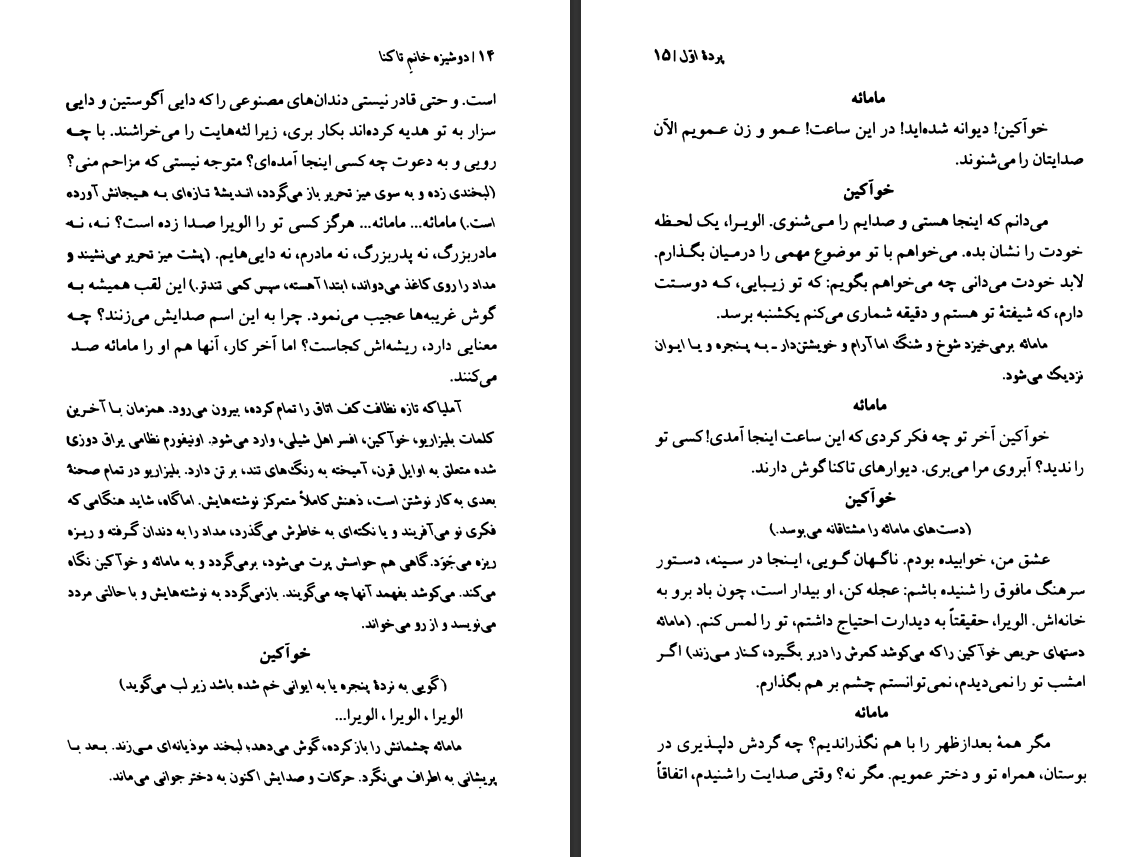 ۱۴ | دوشیزه خانمِ تاکنا
است. و حتی قادر نیستی دندان‌های مصنوعی را که دایی آگوستین و دایی
سزار به تو هدیه کرده‌اند بکار بری، زیرا لثه‌هایت را می‌خراشند. با چه
رویی و به دعوت چه کسی اینجا آمده‌ای؟ متوجه نیستی که مزاحم منی؟
(لبخندی زده و به سوی میز تحریر باز می‌گردد، اندیشهٔ تازه‌ای به هیجانش آورده
است.) مامائه... مامائه... هرگز کسی تو را الویرا صدا زده است؟ نه، نه
مادربزرگ، نه پدربزرگ، نه مادرم، نه دایی‌هایم. (پشت میز تحریر می‌نشیند و
مداد را روی کاغذ می‌دواند، ابتدا آهسته، سپس کمی تندتر.) این لقب همیشه به
گوش غریبه‌ها عجیب می‌نمود. چرا به این اسم صدایش می‌زنند؟ چه
معنایی دارد، ریشه‌اش کجاست؟ اما آخر کار، آنها هم او را مامائه صد
می‌کنند.
آملیا که تازه نظافت کف اتاق را تمام کرده، بیرون می‌رود. همزمان با آخرین
کلمات بلیزاریو، خوآکین، افسر اهل شیلی، وارد می‌شود. اونیفورم نظامی یراق دوزی
شده متعلق به اوایل قرن، آمیخته به رنگ‌های تند، بر تن دارد. بلیزاریو در تمام صحنهٔ
بعدی به کار نوشتن است، ذهنش کاملاً متمرکز نوشته‌هایش. اما گاه، شاید هنگامی که
فکری نو می‌آفریند و یا نکته‌ای به خاطرش می‌گذرد، مداد را به دندان گرفته و ریزه
ریزه می‌جَوَد. گاهی هم حواسش پرت می‌شود، برمی‌گردد و به مامائه و خوآکین نگاه
می‌کند. می‌کوشد بفهمد آنها چه می‌گویند. بازمی‌گردد به نوشته‌هایش و با حالتی مردد
می‌نویسد و از رو می‌خواند.
خوآکین
(گویی به نردهٔ پنجره یا به ایوانی خم شده باشد زیر لب می‌گوید)
الویرا ، الویرا ، الویرا...
مامائه چشمانش را باز کرده، گوش می‌دهد؛ لبخند موذیانه‌ای می‌زند. بعد با
پریشانی به اطراف می‌نگرد. حرکات و صدایش اکنون به دختر جوانی می‌ماند.
پردهٔ اوّل | ۱۵
مامائه
خوآکین! دیوانه شده‌اید! در این ساعت! عمو و زن عمویم الآن
صدایتان را می‌شنوند.
خوآکین
می‌دانم که اینجا هستی و صدایم را می‌شنوی. الویرا، یک لحظه
خودت را نشان بده. می‌خواهم با تو موضوع مهمی را درمیان بگذارم.
لابد خودت می‌دانی چه می‌خواهم بگویم: که تو زیبایی، که دوستت
دارم، که شیفتهٔ تو هستم و دقیقه شماری می‌کنم یکشنبه برسد.
مامائه برمی‌خیزد شوخ و شنگ اما آرام و خویشتن‌دار ـ به پنجره و یا ایوان
نزدیک می‌شود.
مامائه
خوآکین آخر تو چه فکر کردی که این ساعت اینجا آمدی! کسی تو
را ندید؟ آبروی مرا می‌بری. دیوارهای تاکنا گوش دارند.
خوآکین
(دست‌های مامائه را مشتاقانه می‌بوسد.)
عشق من، خوابیده بودم. ناگهان گویی، اینجا در سینه، دستور
سرهنگ مافوق را شنیده باشم: عجله کن، او بیدار است، چون باد برو به
خانه‌اش. الویرا، حقیقتاً به دیدارت احتیاج داشتم، تو را لمس کنم. (مامائه
دستهای حریص خوآکین را که می‌کوشد کمرش را دربر بگیرد، کنار می‌زند) اگر
امشب تو را نمی‌دیدم، نمی‌توانستم چشم بر هم بگذارم.
مامائه
مگر همهٔ بعدازظهر را با هم نگذراندیم؟ چه گردش دلپذیری در
بوستان، همراه تو و دختر عمویم. مگر نه؟ وقتی صدایت را شنیدم، اتفاقاً